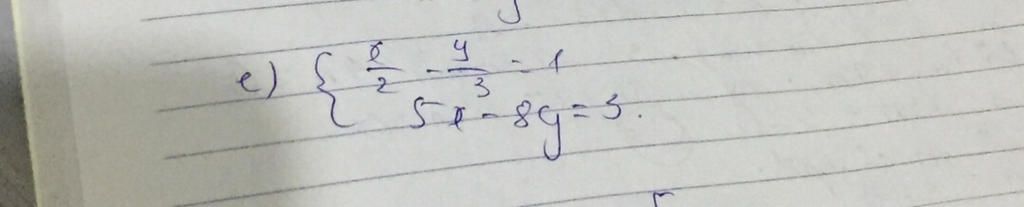 e) { x/2 - y/3 = 1
5x - 8y = 3.